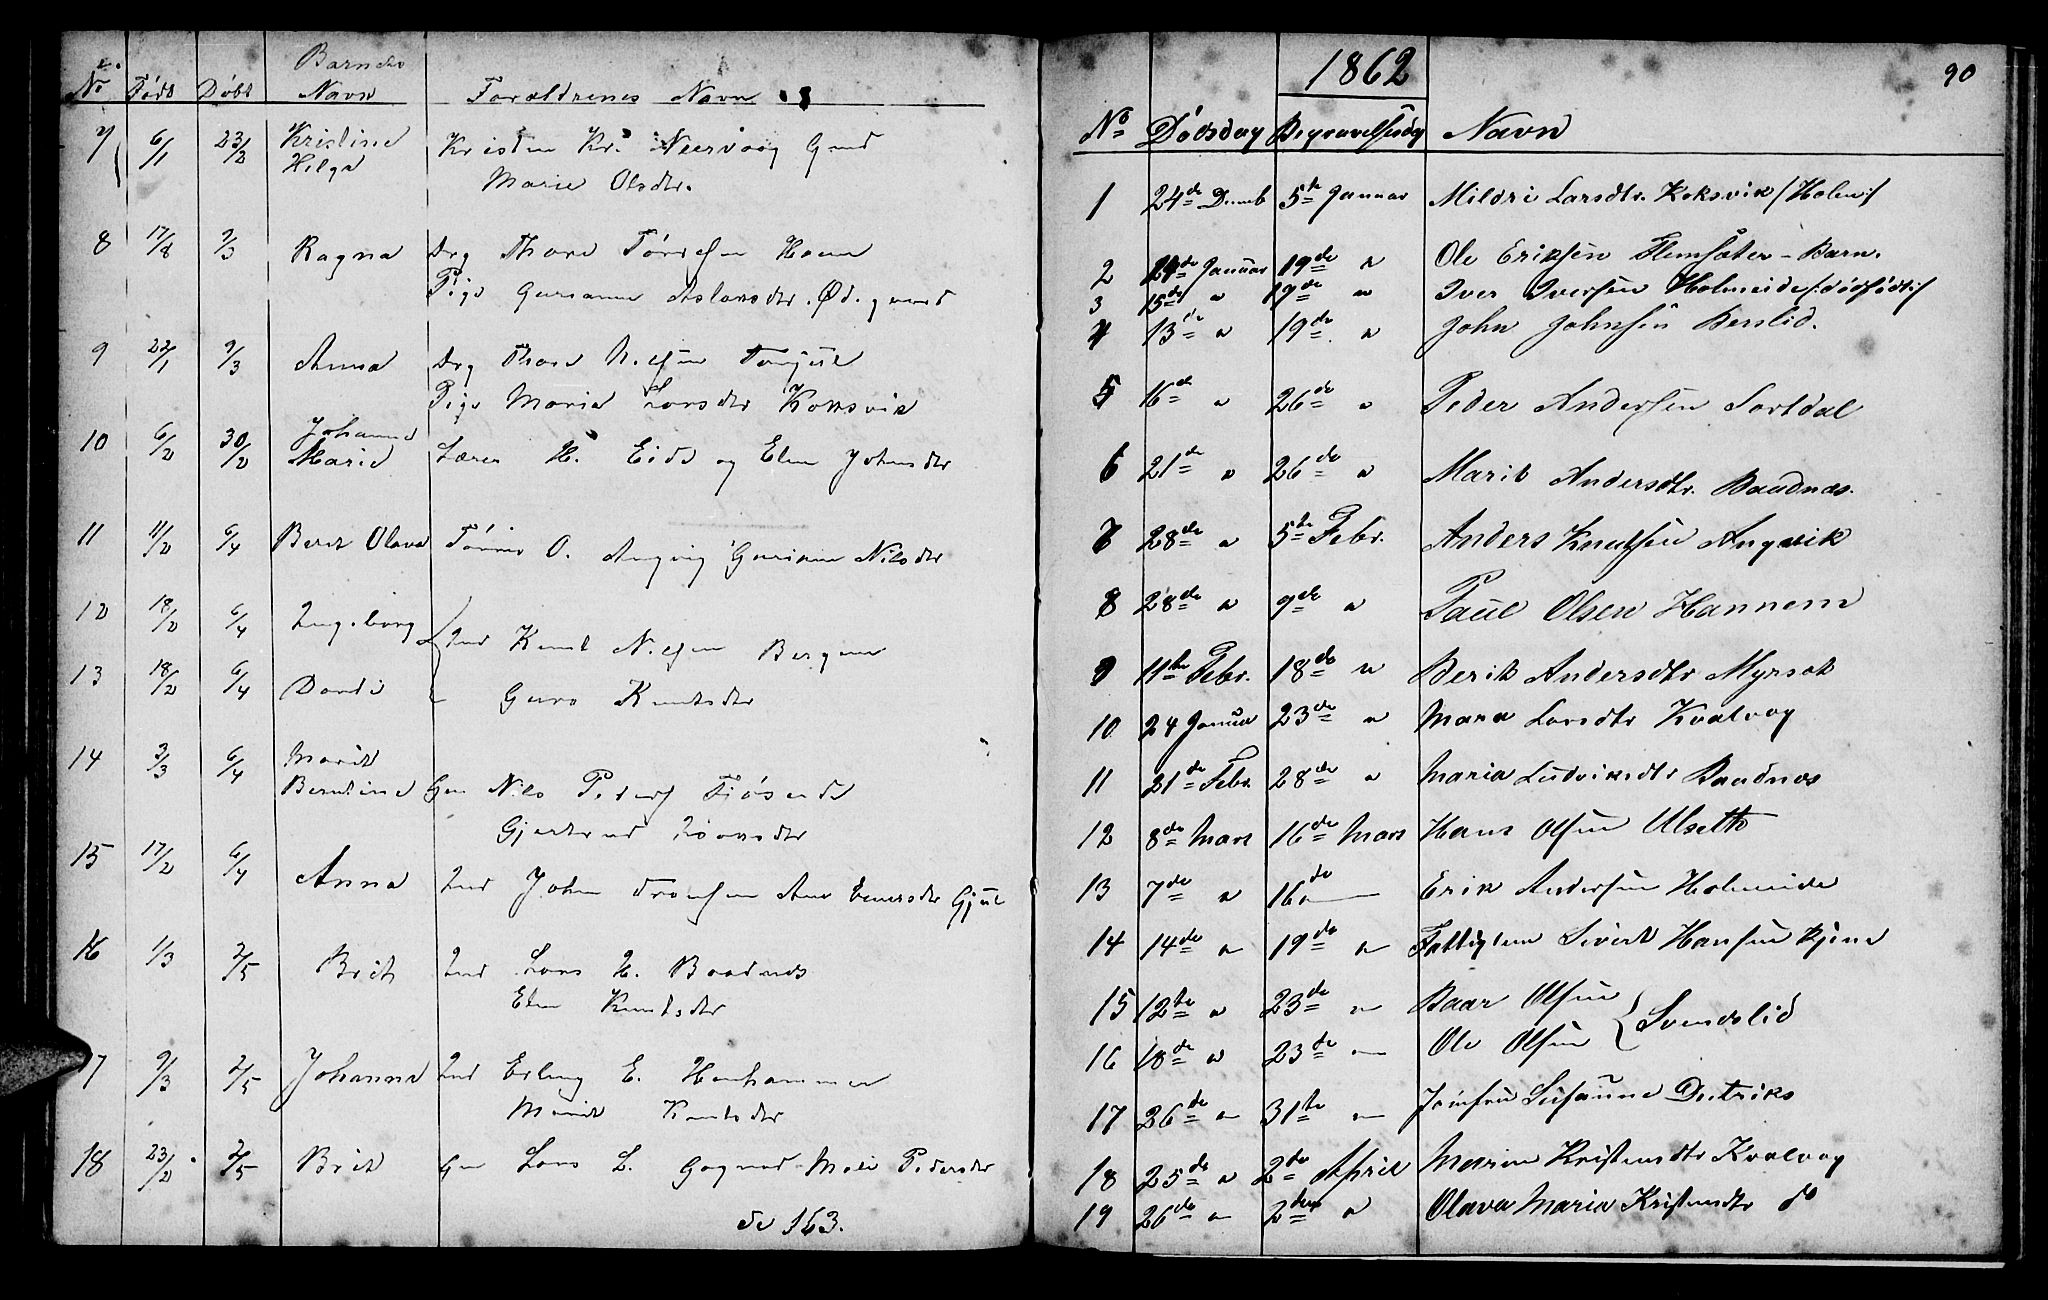 Barnets
No Født Døbt Navn Forældrenes Navn
7 6/1 23/2 Kristine Kristen Kr. Neervoog Gmd
Hilga Marie Olsdtr.
8 17/8 9/3 Ragna Drg Thore
Pige Aslaksdtr.
9 22/1 9/3 Anna Drg Thore Nilsen
Pige Maria Larsdtr Koksvik
10 6/2 30/2 Johanna
Marie Lærer H. Eide og Elen Johnsdtr
11 11/2 6/4 Berit Olava Tønnes O. Angvig Nilsdtr
12 18/2 6/4 Ingeborg Ind Knut Nilsen Bergem
13 18/2 6/4 Dordi Guro Knutsdtr
14 3/3 6/4 Marit
Berntine Gm Nils Peders
Gjertrud
15 17/2 6/4 Anna Ind John Gjul
16 1/3 2/5 Brit Ind Lars L. Baadnes
Elen Knutsdtr
17 9/3 2/5 Johanna Ind Erling E. Henhammer
Marit Knutsdtr
18 23/2 2/5 Brit Gm Lars L. Gagnad Mali Pedersdtr
se 163.
1862
90
No Dødsdag Begravelsesdag Navn
1 24de Decmb 5te Januar Mildri Larsdtr. Koksvik /Holm/
2 Januar 19de " Ole Eriksen Flemsæter - Barn.
3 15de " 19de " Iver Iversen Holmeide /:dødfødt:/
4 13de " 19de " John Johnsen Berslid.
5 16de " 26de " Peder Andersen Sortdal
6 21de " 26de " Marit Andersdtr. Baadnæs.
7 28de " 5te Febr. Anders Knutsen Angvik
8 28de " 9de " Paul Olsen Hannem
9 11te Febr. 18de " Berit Andersdtr Myrsæt
10 24 Januar 23de " Mara Larsdtr Kvalvog
11 21de Febr. 28de " Maria Ludviksdtr Baadnæs
12 8de Mars 16de Mars Hans Olsen Ulseth
13 7de " 16de — Erik Andersen Holmeide
14 14de " 19de " Fattiglem Sivert Hansen
15 12te " 23de " Baar Olsen
Svendslid
16 18de " 23de " Ole Olsen
17 26de " 31te " Jomfru Susanne Dietriks
18 25de " 2de April Maren Kristensdtr Kvalvog
19 26de " 2den " Olava Maria Kristensdtr do